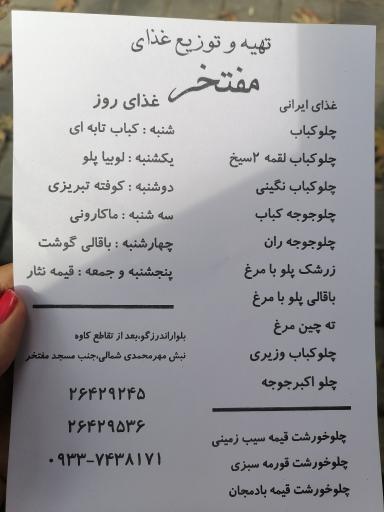 تهیه و توزیع غذای
مفتخر
غذای ایرانی
چلوکباب
چلوکباب لقمه ۲سیخ
چلوکباب نگینی
چلوجوجه کباب
چلوجوجه ران
زرشک پلو با مرغ
باقالی پلو با مرغ
ته چین مرغ
چلوکباب وزیری
چلو اکبرجوجه
چلوخورشت قیمه سیب زمینی
چلوخورشت قورمه سبزی
چلوخورشت قیمه بادمجان
غذای روز
شنبه : کباب تابه ای
یکشنبه : لوبیا پلو
دوشنبه : کوفته تبریزی
سه شنبه : ماکارونی
چهارشنبه : باقالی گوشت
پنجشنبه و جمعه : قیمه نثار
بلواراندرزگو،بعد از تقاطع کاوه
نبش مهرمحمدی شمالی،جنب مسجد مفتخر
۲۶۴۲۹۲۴۵
۲۶۴۲۹۵۳۶
۰۹۳۳-۷۴۳۸۱۷۱